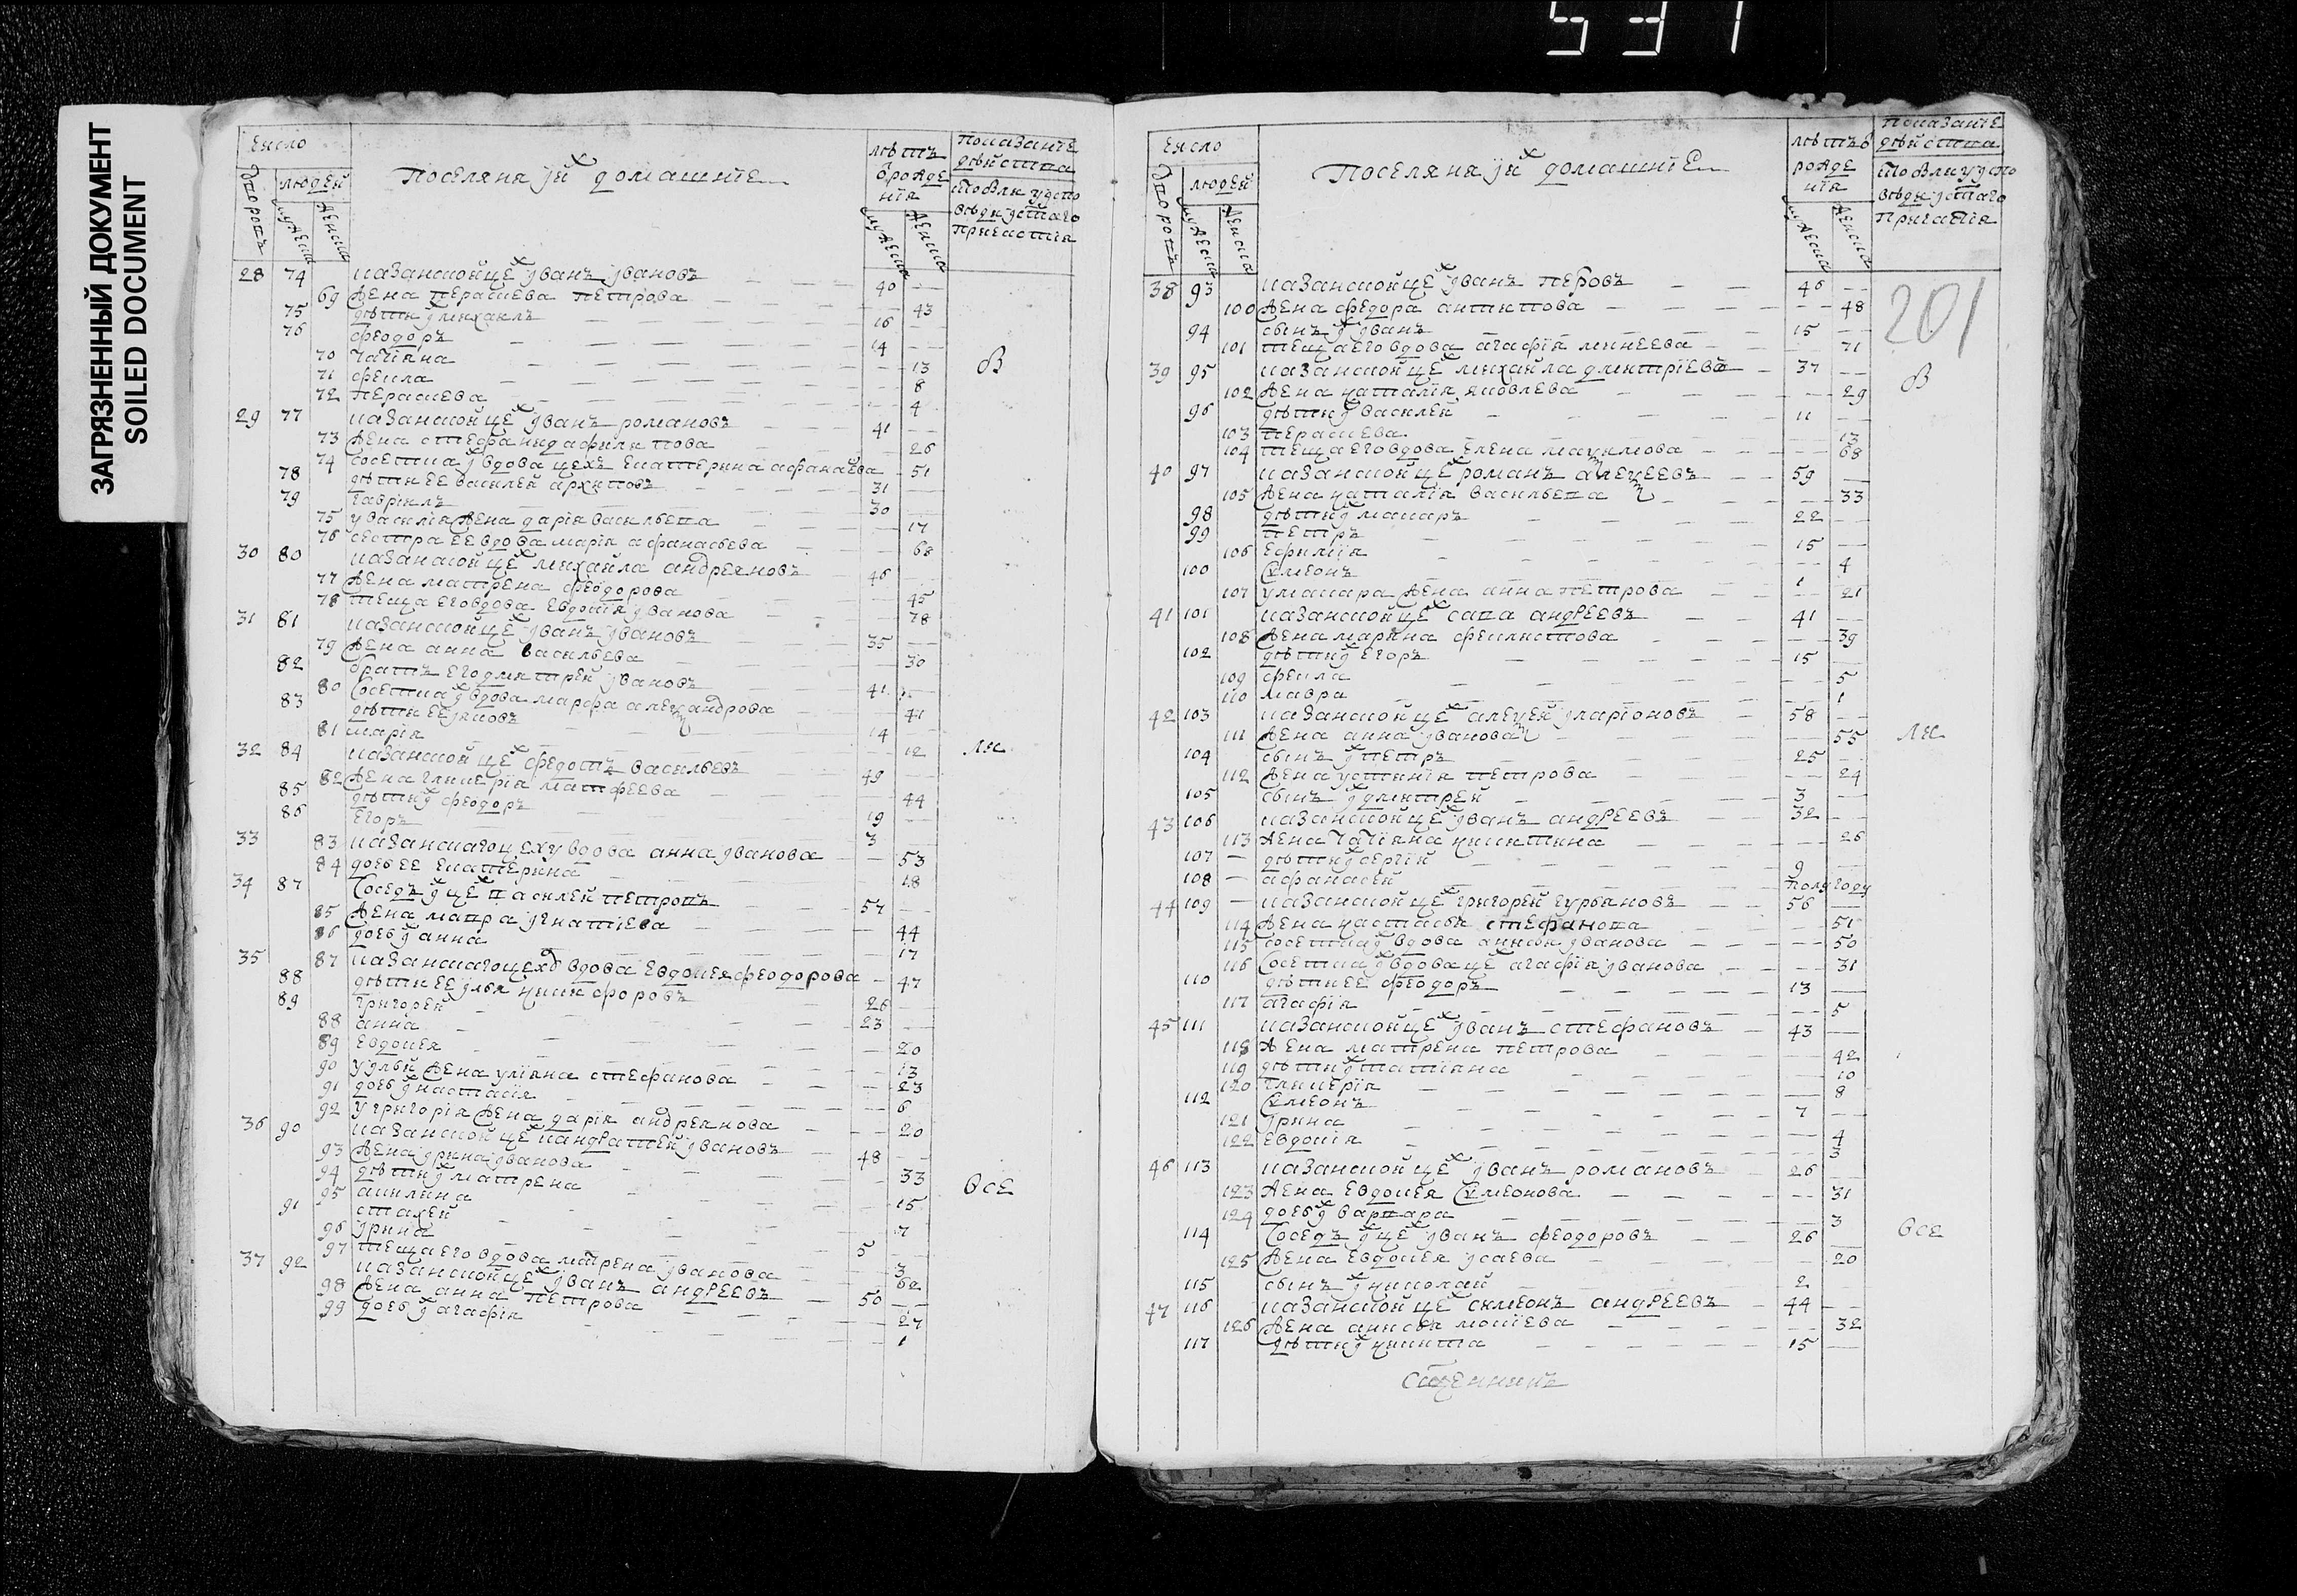 531
ЗАГРЯЗНЕННЫЙ ДОКУМЕНТ
SOILED DOCUMENT
Число
дворовъ
людей
мужеска
женска
Поселяня и ихъ домашнїе
лѣтъ
ѿ рожде
нїя
мужеска
женска
Показанїе
дѣйства
28 74 казанской цех иванъ ивановъ 40
69 жена перасковья петрова 43
75 дѣти их михаилъ 16
76 феодоръ 14
70 татїяна 13
71 фекла 8
72 перасева 4
В
29 77 казанской цех иванъ романовъ 41
73 жена стефанида филипова 26
74 соседка их вдова цехъ екатерина афанаѣва 51
78 дѣти ее василей архиповъ 31
79 гаврїилъ 30
75 у василїя жена дарїя васильева 17
76 сестра ее вдова марїя афанасьева 68
30 80 казанской цех михайла андреяновъ 46
77 жена матрена феодорова 45
78 теща его вдова евдокїя иванова 78
31 81 казанской цех иванъ ивановъ 35
79 жена анна васильева 30
82 братъ его дмитрей ивановъ 41
80 соседка их вдова марфа александрова 41
83 дѣти ее яковъ 14
81 марїя 12
32 84 казанской цех федотъ васильевъ 49
82 жена гликерїя матфеева 44
85 дѣти их феодоръ 19
86 егоръ 3
33 83 казанскаго цеху вдова анна иванова 53
84 дочь ее екатерина 18
34 87 соседъ их цех василей петровъ 57
85 жена мавра игнатїева 44
86 дочь их анна 17
35 87 казанскаго цеха вдова евдокея феодорова 47
88 дѣти ее илья никифоровъ 26
89 григорей 23
88 анна 20
89 евдокея 13
90 у ильи жена улїяна стефанова 23
91 дочь их настасїя 6
92 у григорїя жена дарїя андреянова 20
36 90 казанской цех кандратей ивановъ 48
93 жена ирина иванова 33
94 дѣти их матрена 15
95 акилина 7
91 стахей 5
96 ирина 3
97 теща его вдова матрена иванова 62
все
37 92 казанской цех иванъ андреевъ 50
98 жена анна петрова 27
99 дочь их агафїя 1
Число
дворовъ
людей
мужеска
женска
Поселяня и ихъ домашнїе
лѣтъ ѿ
рожде
нїя
мужеска
женска
Показанїе
дѣйства
201
38 93 казанской цех иванъ петровъ 46
100 жена федора антипова 48
94 сынъ их иванъ 15
101 теща его вдова агафїя минеева 71
39 95 казанской цех михайла дмитрїевъ 37
В
102 жена наталїя яковлева 29
96 дѣти их василей 11
103 перасева 13
104 теща его вдова елена макимова 68
40 97 казанской цех романъ алеѯеевъ 59
105 жена наталїя васильева 33
98 дѣти их макаръ 22
99 петръ 15
106 ефимїя 4
100 сѵмеонъ 1
107 у макара жена анна петрова 21
41 101 казанской цех сава андреевъ 41
108 жена марина феилистова 39
102 дѣти их егоръ 15
109 фекла 5
110 мавра 1
42 103 казанской цех алеѯей иларїоновъ 58
111 жена анна иванова 55
104 сынъ их петръ 25
112 жена устинїя петрова 24
105 сынъ их дмитрей 3
43 106 казанской цех иванъ андреевъ 32
113 жена татїяна никитина 26
107 дѣти их сергїй 9
108 афанасей полугоду
44 109 казанской цех григорей гурьяновъ 56
114 жена настасья стефанова 51
115 соседка их вдова анисья иванова 50
116 соседка их вдова цех агафїя иванова 31
110 дѣти ее феодоръ 13
117 агафїя 5
45 111 казанской цех иванъ стефановъ 43
118 жена матрена петрова 42
119 дѣти их татїяна 10
120 гликерїя 8
112 сѵмеонъ 7
121 ирина 4
122 евдокїя 3
46 113 казанской цех иванъ романовъ 26
123 жена евдокея сѵмеонова 31
124 дочь их варвара 3
114 соседъ их цех иванъ феодоровъ 26
все
125 жена евдокея исаева 20
115 сынъ их николай 2
47 116 казанской цех симеонъ андреевъ 44
126 жена анисья мокїева 32
117 дѣти их никита 15
Сщенникъ